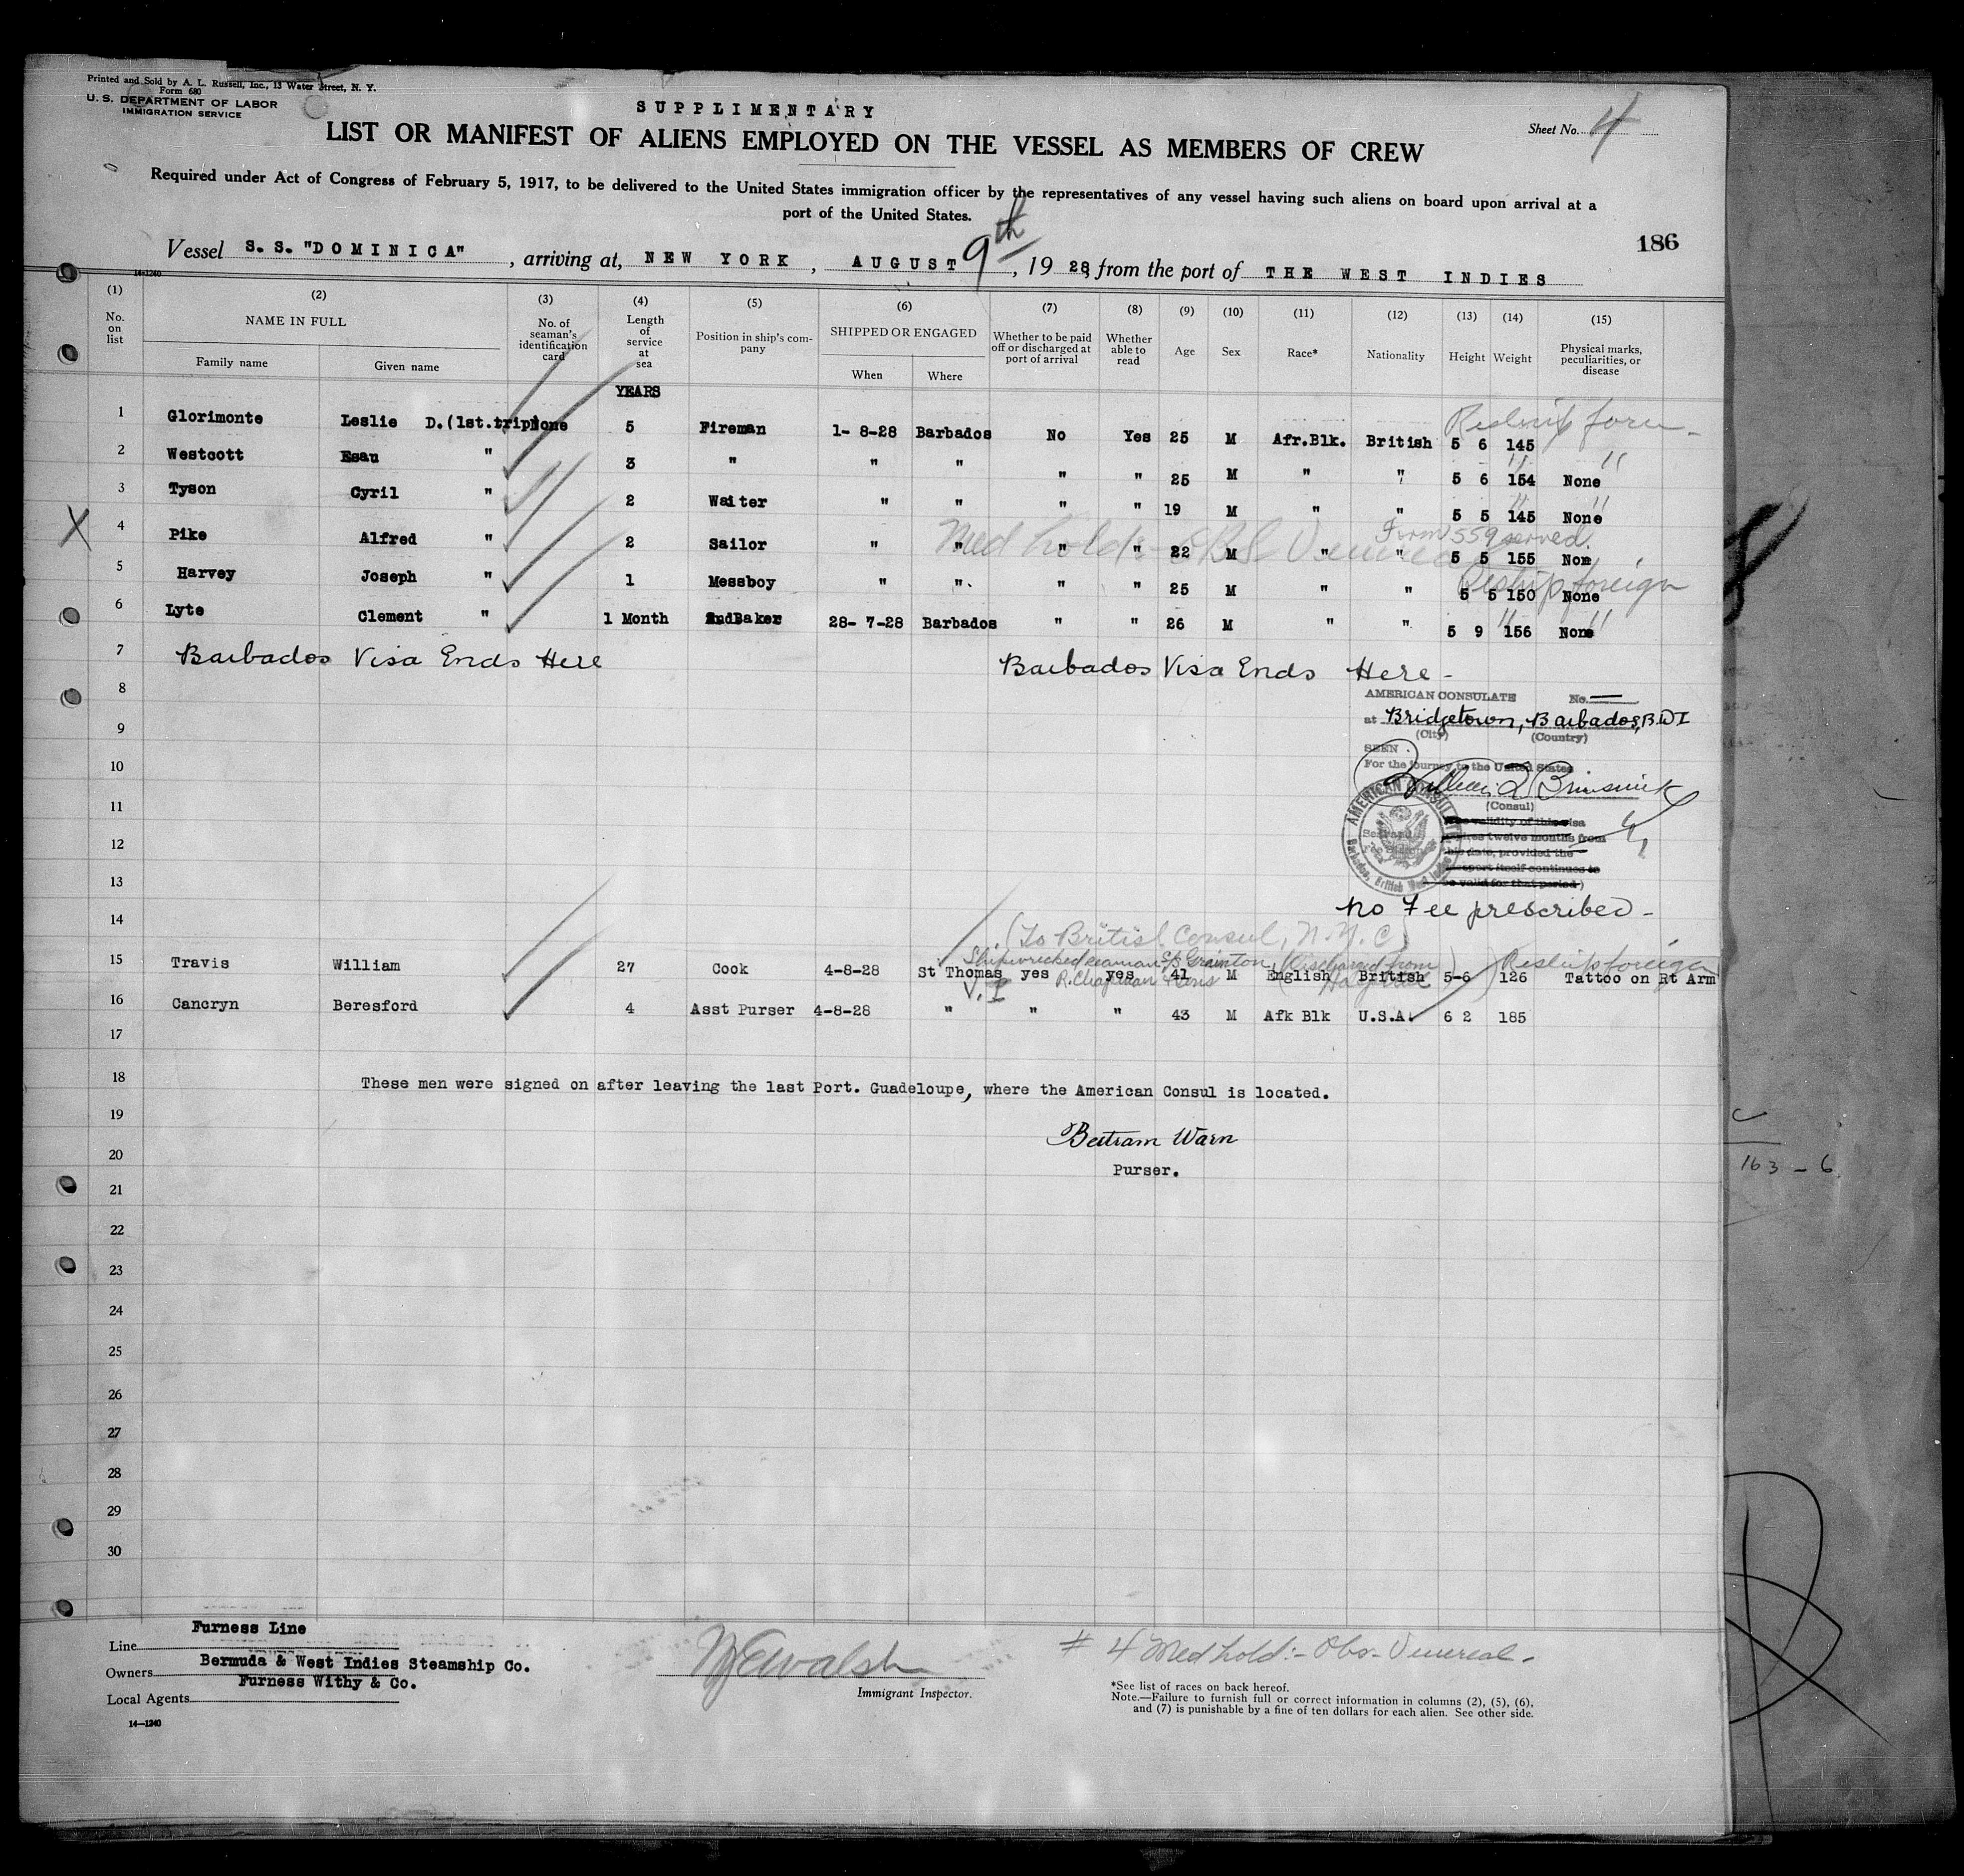 Printed and Sold by A. L. Russell, Inc., 13 Water Street, N. Y.
Form 680
U. S. DEPARTMENT OF LABOR
IMMIGRATION SERVICE
SUPPLIMENTARY
Sheet No. 4
LIST OR MANIFEST OF ALIENS EMPLOYED ON THE VESSEL AS MEMBERS OF CREW
Required under Act of Congress of February 5, 1917, to be delivered to the United States immigration officer by the representatives of any vessel having such aliens on board upon arrival at a
port of the United States.
186
Vessel S. S. "DOMINICA", arriving at, NEW YORK, AUGUST 9th, 1928, from the port of THE WEST INDIES
14-1240
(1) (2) (3) (4) (5) (6) (7) (8) (9) (10) (11) (12) (13) (14) (15)
No. on list NAME IN FULL Family name Given name No. of seaman's identification card Length of service at sea Position in ship's company SHIPPED OR ENGAGED When Where Whether to be paid off or discharged at port of arrival Whether able to read Age Sex Race* Nationality Height Weight Physical marks, peculiarities, or disease
YEARS
1 Glorimonte Leslie D.(1st.trip)one 5 Fireman 1- 8-28 Barbados No Yes 25 M Afr.Blk. British 5 6 145 Reship
2 Westcott Esau " 3 " " " " " 25 M " " 5 6 154 None "
3 Tyson Cyril " 2 Waiter " " " " 19 M " " 5 5 145 None "
X 4 Pike Alfred " 2 Sailor " " " " 22 M " " 5 5 155 Non
Med hold: Form 559 served
5 Harvey Joseph " 1 Messboy " " " " 25 M " " 5 5 150 None Reship foreign
6 Lyte Clement " 1 Month 2ndBaker 28- 7-28 Barbados " " 26 M " " 5 9 156 None "
7 Barbados Visa Ends Here Barbados Visa Ends Here -
8 AMERICAN CONSULATE No. —
at Bridgetown, Barbados, B.W.I
(City) (Country)
9
SEEN
10 For the journey to the United States
(Consul)
11 validity of this visa
12 twelve months from
date, provided the
itself continues to
13 be valid for that period)
AMERICAN CONSULATE
Barbados, British West Indies
No Fee prescribed -
14
(To British Consul, N.Y.C)
Shipwrecked seaman S/S (Discharged from Hospital) Reship foreign
15 Travis William 27 Cook 4-8-28 St Thomas yes yes 41 M English British 5-6 126 Tattoo on Rt Arm
V. I R. Chapman & Sons
16 Cancryn Beresford 4 Asst Purser 4-8-28 " " " 43 M Afk Blk U.S.A. 6 2 185
17
18 These men were signed on after leaving the last Port. Guadeloupe, where the American Consul is located.
19
Bertram Warn
20
Purser.
21
22
23
24
25
26
27
28
29
30
163 - 6
Line Furness Line
Owners Bermuda & West Indies Steamship Co.
Local Agents Furness Withy & Co.
14—1240
Walsh
Immigrant Inspector.
# 4 Med hold:- Obs- Venereal.
*See list of races on back hereof.
Note.—Failure to furnish full or correct information in columns (2), (5), (6),
and (7) is punishable by a fine of ten dollars for each alien. See other side.